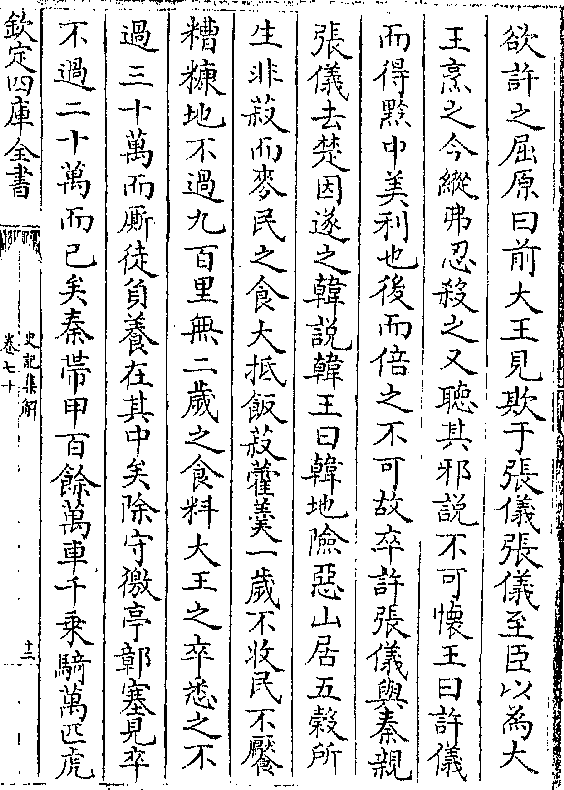 欲許之屈原曰前大王見欺于張儀張儀至臣以為大
王烹之今縱弗忍殺之又聽其邪說不可懷王曰許儀
而得黔中美利也後而倍之不可故卒許張儀與秦親
張儀去楚因遂之韓說韓王曰韓地險惡山居五穀所
生非菽而麥民之食大抵飯菽藿羮一歲不收民不饜
糟糠地不過九百里無二歲之食料大王之卒悉之不
過三十萬而厮徒負養在其中矣除守徼亭鄣塞見卒
不過二十萬而已矣秦帶甲百餘萬車千乘騎萬匹虎
欽定四庫全書
史記集解
卷七十
十三